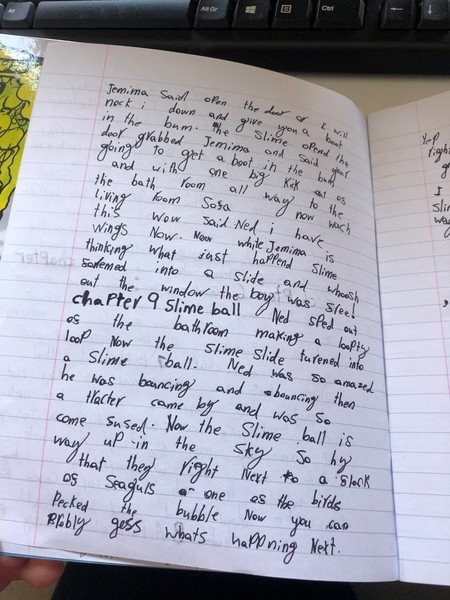 Jemima said open the door or I will
nock i down and give you a boot
in the bum. the Slime opend the
door grabbed Jemima and said your
going to get a boot in the bum
and with one big kick out os
the bath room all way to the
living room Sosa now wach
this wow said Ned i have
wings Now. Now while Jemima is
thinking what just happend Slime
sormed into a slide and whoosh
out the window the boy was sree!
chapter 9 Slime ball Ned sped out
os the bathroom making a loopty
loop Now the Slime Slide turened into
a Slime ball. Ned was so amazed
he was bouncing and bouncing then
a tracter came by and was so
come sused. Now the Slime ball is
way up in the sky So hy
that they right Next to a slock
os Seaguls one os the birds
Pecked the bubble Now you can
Probly gess whats happning Next.
Yep
right
I
Slim
way